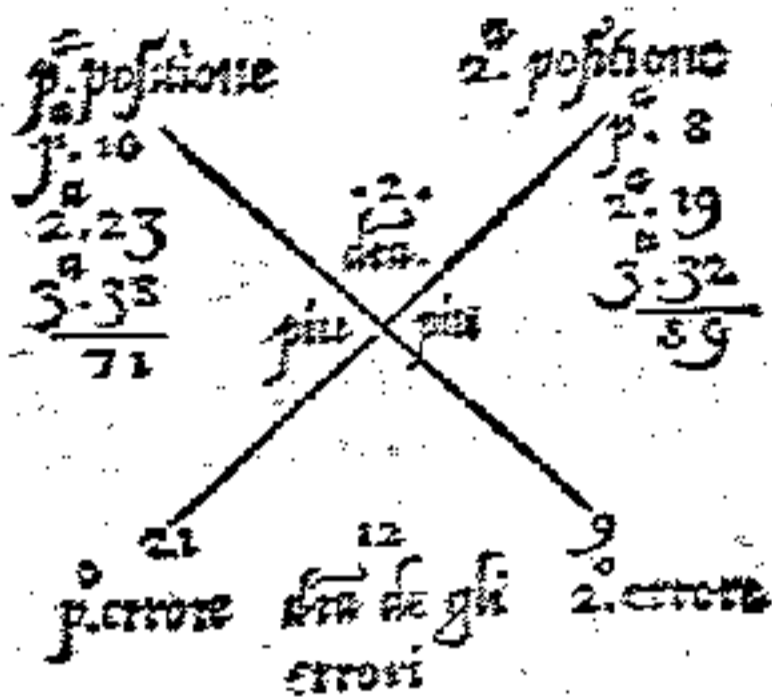 pª. positione
pª. 10
2ª. 23
3ª. 38
71
2ª positione
pª. 8
2ª. 19
3ª. 32
59
.2.
dra.
piu
piu
21
pº. errore
12
dra de gli
errori
9
2º. errore